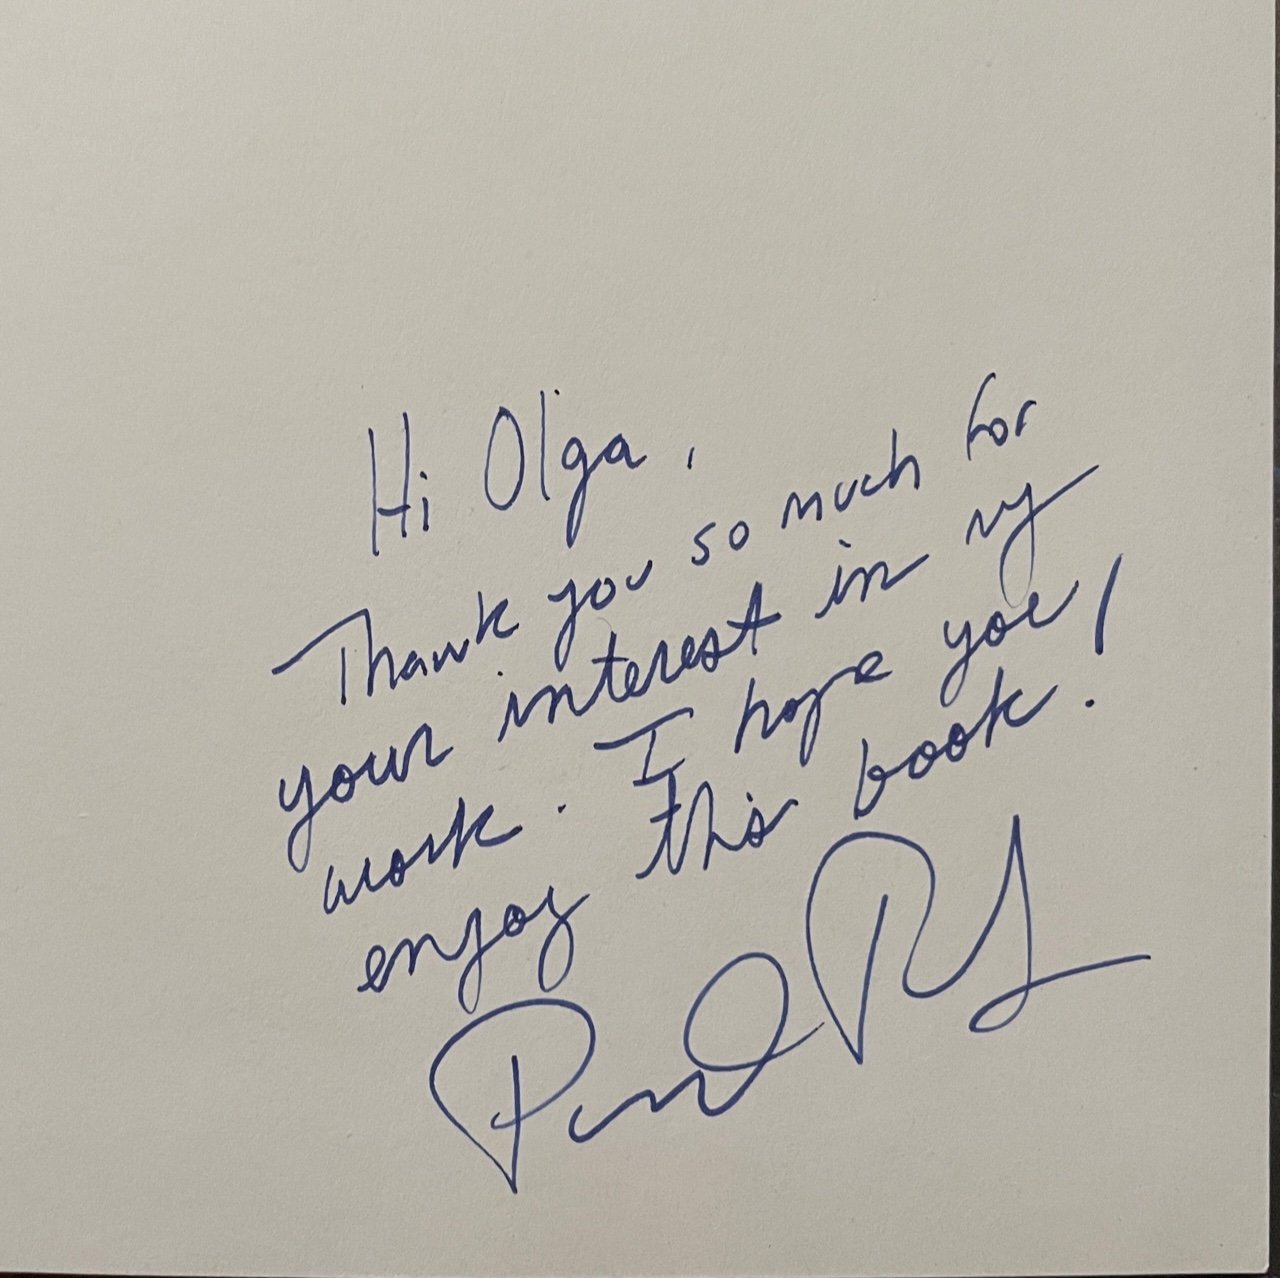 Hi Olga,
Thank you so much for
your interest in my
work. I hope you
enjoy this book!